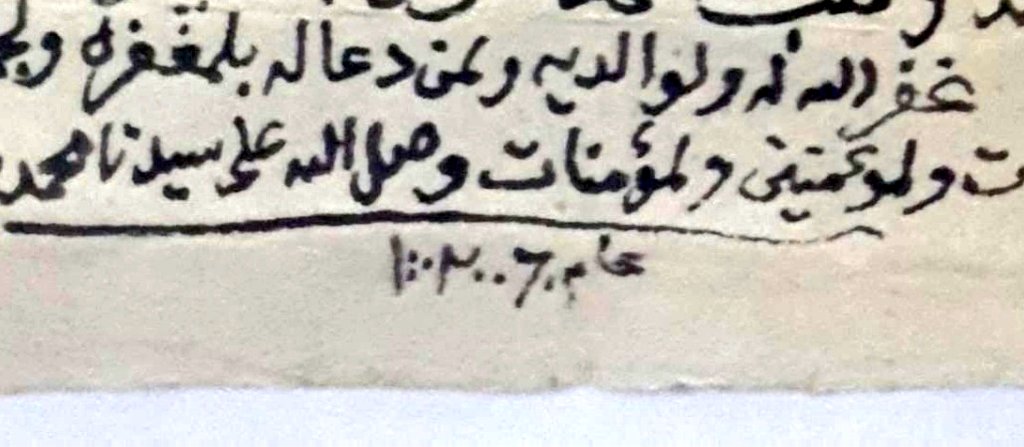 غفر الله له ولوالديه ولمن دعا له بلمغفرة
ولموئمنين ولمؤمنات وصل الله على سيدنا محمد
عام